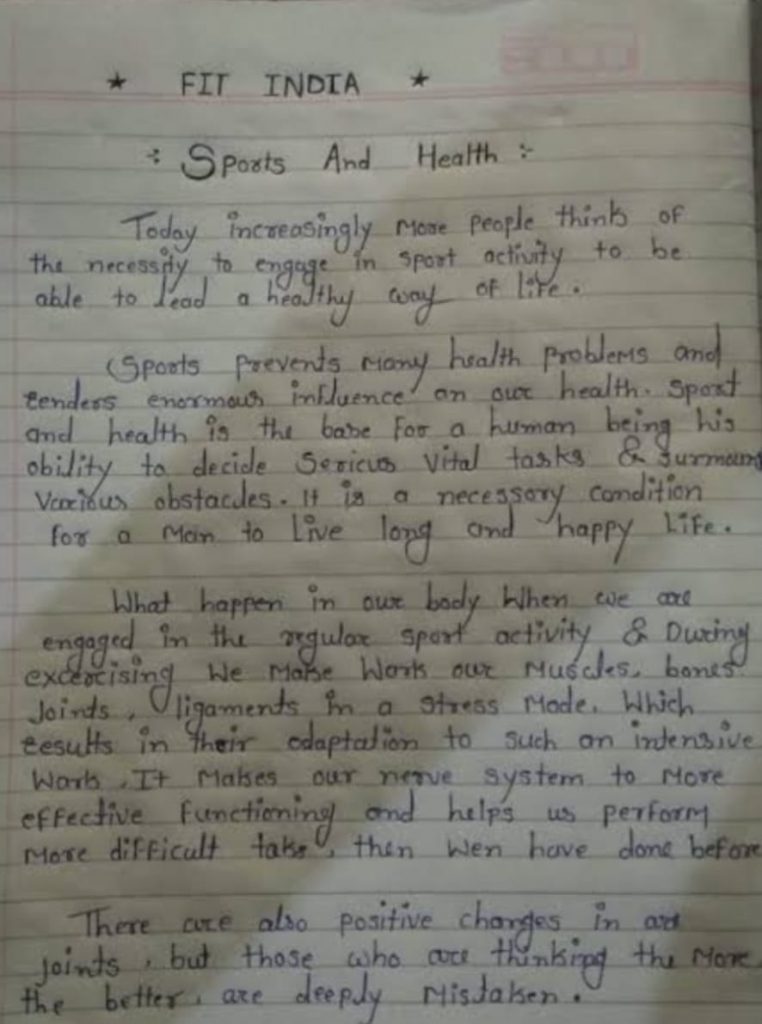 ★ FIT INDIA ★
:- Sports And Health :-
Today increasingly more people think of
the necessity to engage in sport activity to be
able to lead a healthy way of life.
Sports prevents many health problems and
renders enormous influence on our health. Sport
and health is the base for a human being his
ability to decide serious vital tasks & surmount
various obstacles. It is a necessary condition
for a man to live long and happy life.
What happen in our body when we are
engaged in the regular sport activity & During
excercising we make work our muscles, bones
joints, ligaments in a stress mode. Which
results in their adaptation to such an intensive
work. It makes our nerve system to more
effective functioning and helps us perform
more difficult taks, then wen have done before
There are also positive changes in our
joints, but those who are thinking the more
the better, are deeply mistaken.